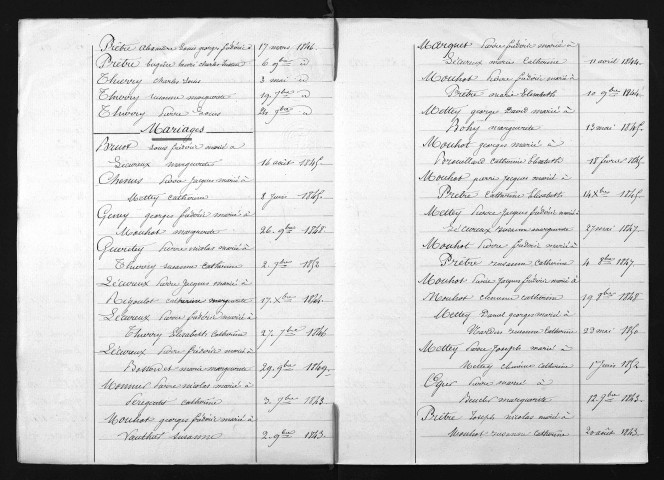 Prêtre Louis georges frédéric id 17 mars 1844.
Prêtre Louis Charles 6 9bre id
Thierry Charles Louis 3 mai id
Thierry susanne marguerite 19 7bre id
Thierry Pierre Louis 20 7bre id
Mariages
Bruot Louis frédéric marié à
Lécureux marguerite 16 août 1845.
Chenus Pierre Jacques marié à
Mettey catherine 8 Juin 1845.
georges frédéric marié à
Mouhot marguerite 26. 9bre 1848.
Pierre nicolas marié à
Thierry susanne catherine 2. 7bre 1852
Lécureux Pierre Jacques marié à
Rigoulot catherine marguerite 17. Xbre 1844.
Lécureux Pierre frédéric marié à
Thierry Elisabeth catherine 27. 7bre 1846
Lécureux Pierre frédéric marié à
marie marguerite 29. 9bre 1849.
Monnier Pierre nicolas marié à
catherine 3. 7bre 1843.
Mouhot georges frédéric marié à
Vauthier Susanne 2. 9bre 1843.
Marquet Pierre frédéric marié à
Lécureux marie Catherine 11 avril 1844.
Mouhot Pierre frédéric marié à
Prêtre marie Elisabeth 10 9bre 1844.
Mettey georges David marié à
marguerite 13 mai 1845.
Mouhot georges marié à
Brouillard catherine Elisabeth 18 février 1845
Mouhot pierre Jacques marié à
Prêtre Catherine Elisabeth 14 Xbre 1845.
Mettey Pierre Jacques frédéric marié à
Lécureux susanne marguerite 27 mai 1847.
Mouhot Pierre frédéric marié à
Prêtre susanne catherine 4 8bre 1847
Mouhot Pierre Jacques frédéric marié à
Mouhot catherine 19 8bre 1848
Mettey Daniel georges marié à
susanne catherine 23 mai 1850
Mettey Pierre Joseph marié à
Mettey catherine 17 Juin 1852
Pierre marié à
marguerite 12 9bre 1843.
Prêtre Joseph nicolas marié à
Mouhot susanne catherine 20 août 1843.